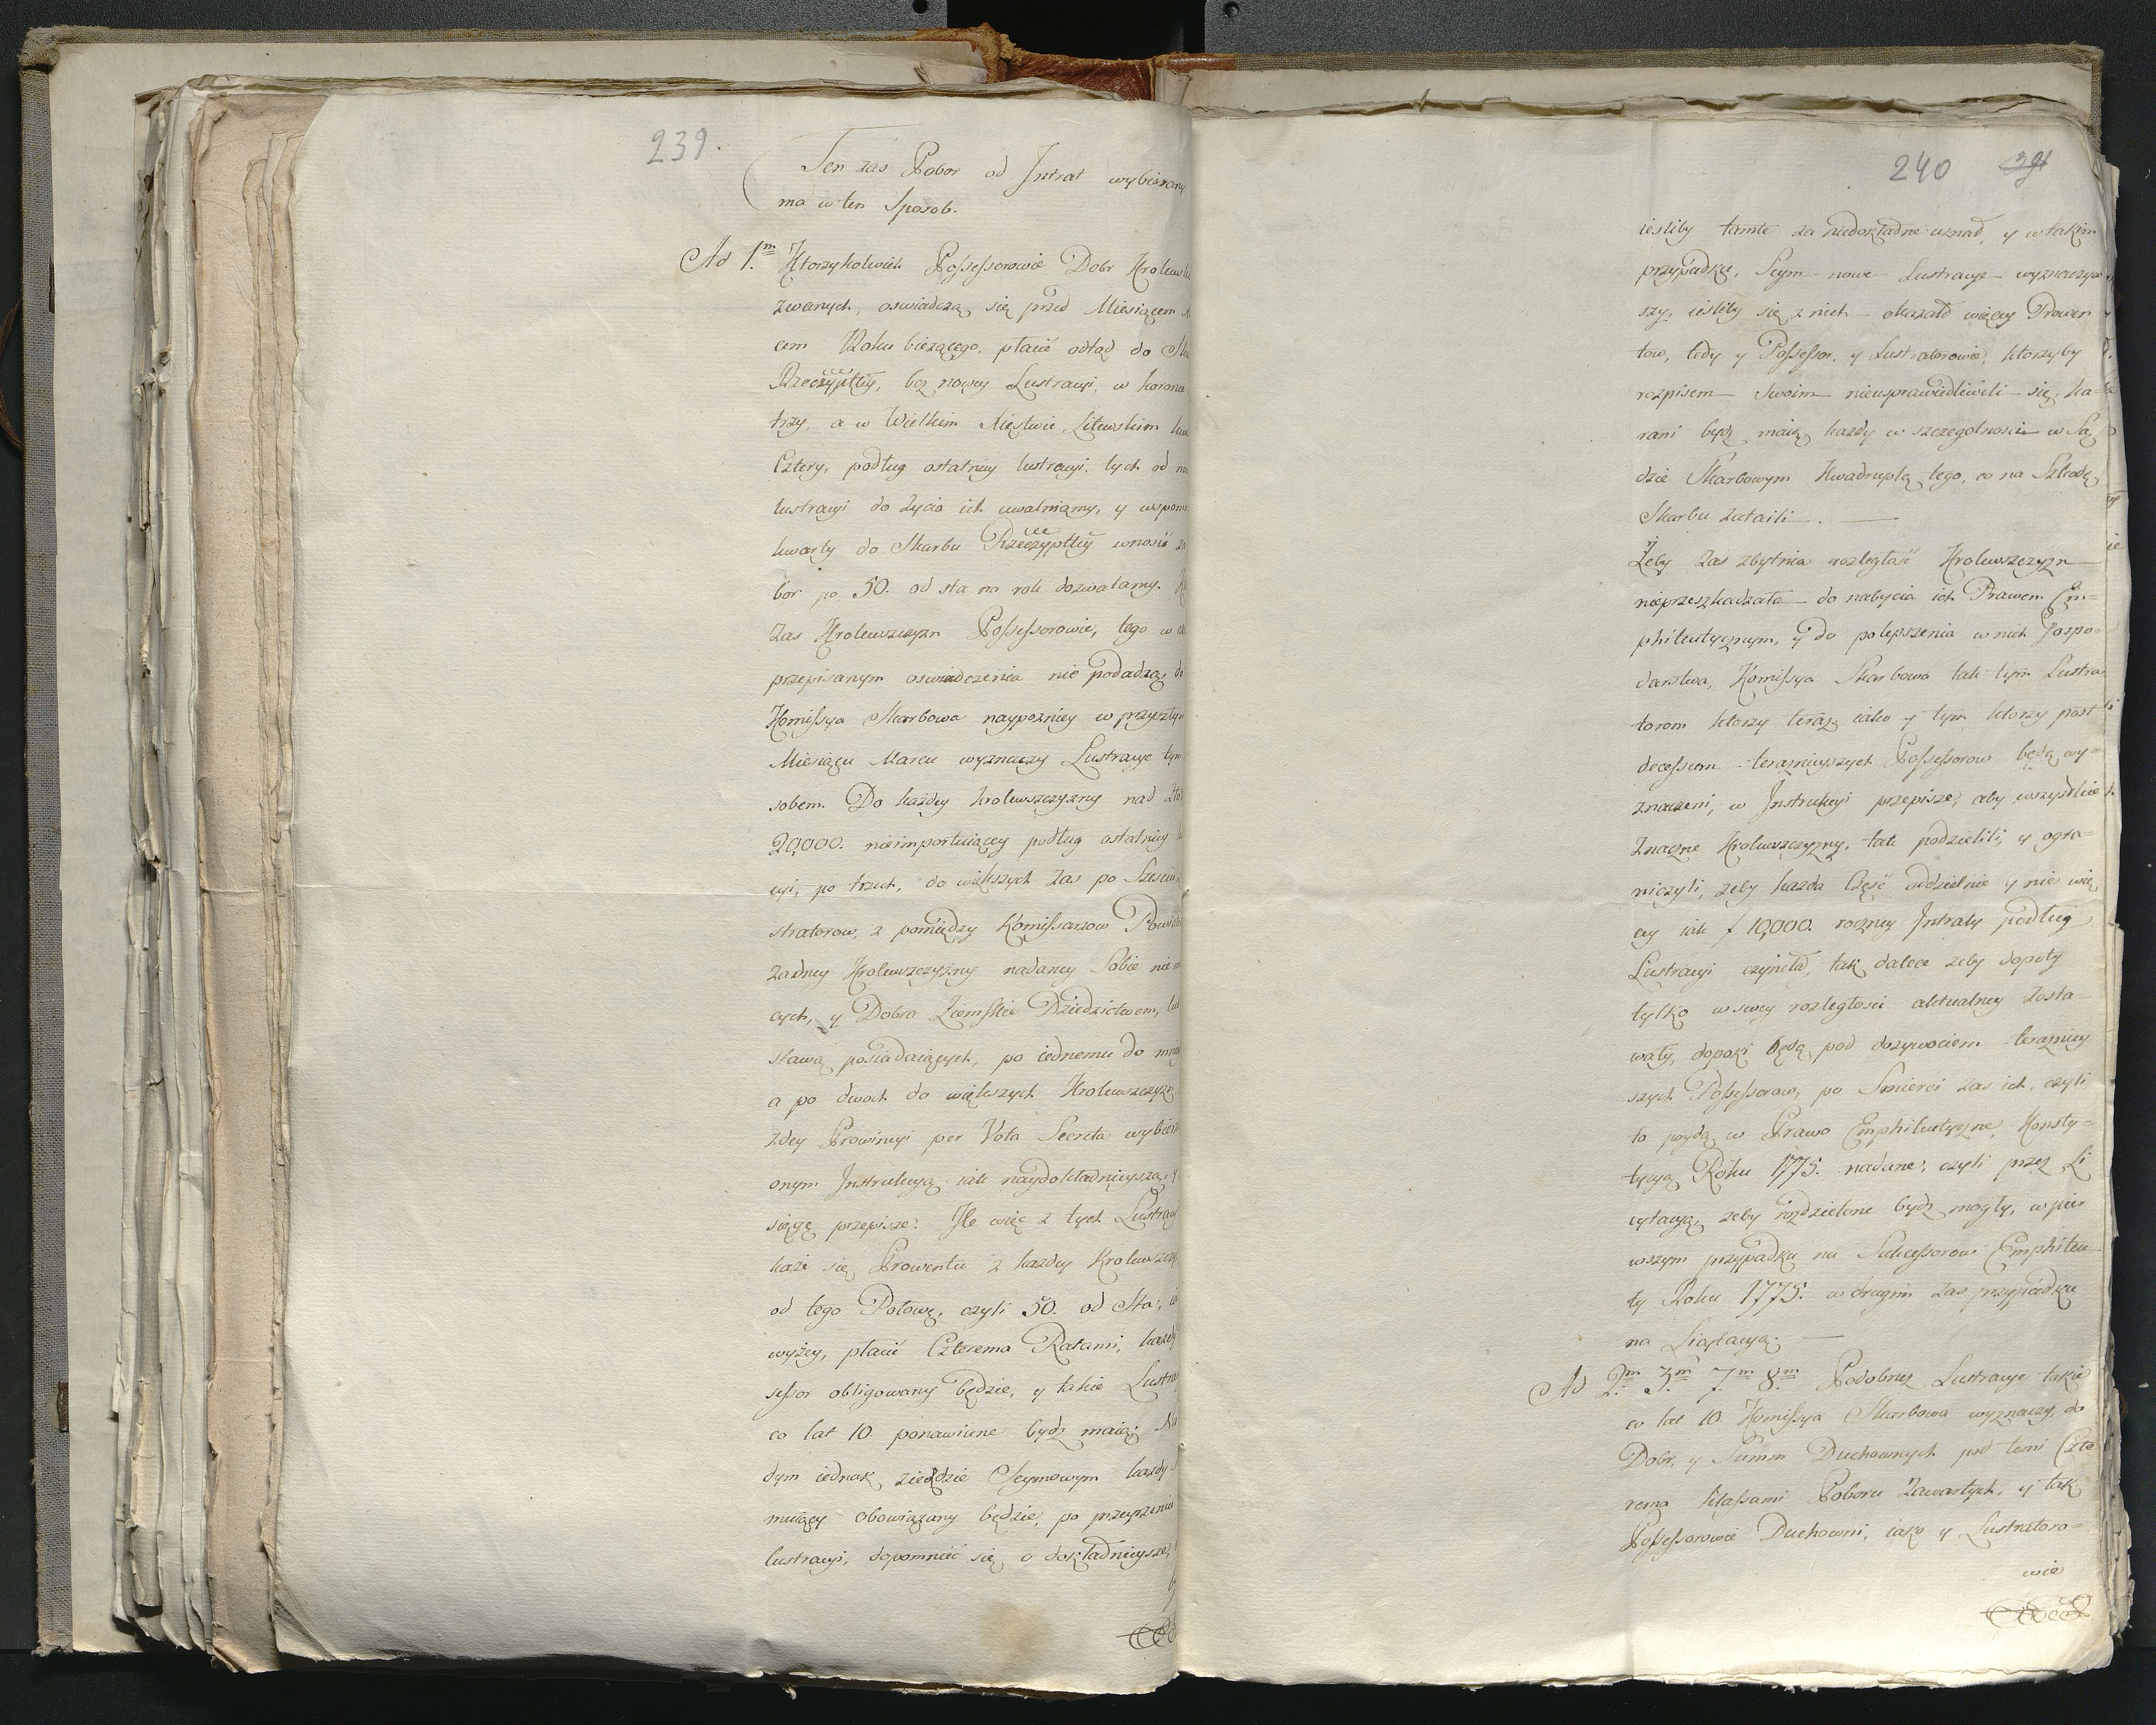 239.
Ten zas Pobor od Intrat wybierany
ma w ten Sposob.
Ad 1.m Ktorzykolwiek Possessorowie Dobr Krolews
zwanych, oswiadczą się przed Miesiącem
cem Roku bieżącego, płacić odtąd do
Rzeczypltey, bez nowey Lustracyi, w korona
trzy, a w Wielkim Xięstwie Litewskim kwa
Cztery, podług ostatniey lustracyi, tych od no
lustracyi do życia ich uwalniamy, y wspom
kwarty do Skarbu Rzeczypltey wnosić za
bor po 50. od sta na rok dozwalamy.
Zas Krolewszczyzn Possessorowie, tego w
przepisanym oswiadczenia nie podadzą, do
Komissya Skarbowa naypozniey w przyszłym
Miesiącu Marcu wyznaczy Lustracye tym
sobem. Do każdey krolewszczyzny nad Zło
20,000. nieimportuiącey podług ostatniey
cyi, po trzech, do większych zas po Szesciu
stratorow, z pomiędzy Komissarzow Powiato
żadney Krolewszczyzny nadaney Sobie nie
cych, y Dobra Ziemskie Dziedzictwem, lub
stawą posiadaiących, po iednemu do mniey
a po dwoch do większych Krolewszczyzn
żdey Prowincyi per Vota Secreta wybier
onym Instrukcyą iak naydokładnieyszą, y
sięgę przepisze: Ile więc z tych Lustracy
każe się Prowentu z każdey Krolewszczy
od tego Połowę, czyli 50. od Sta,
wyżey, płacić Czterema Ratami, każdy
sessor obligowany będzie, y takie Lustra
co lat 10 ponawiane bydź maią; Na
dym iednak zieździe Seymowym każdy
muiący obowiązany będzie, po przeyrzeniu
lustracyi, dopomnieć się o dokładnieysze,
240 39
iesliby tamte za niedokładne uznał, y w takim
przypadku, Seym nowe Lustracye wyznaczyw
szy, iesliby się z nich okazało więcey Prowen
tow, tedy y Possessor, y Lustratorowie, ktorzyby
rozpisem Swoim nieusprawiedliwili się, ka=
rani bydź maią każdy w szczegolnosci w Są
dzie Skarbowym Kwadruplą tego, co na Szkodę
Skarbu zataili.
Żeby zas zbytnia rozległość Krolewszczyzn
nieprzeszkadzała do nabycia ich Prawem Em=
phiteutycznym, y do polepszenia w nich Gospo=
darstwa, Komissya Skarbowa tak tym Lustra
torom ktorzy teraz iako y tym ktorzy post
decessum teraznieyszych Possessorow będą wy=
znaczeni, w Instrukcyi przepisze, aby wszystkie
znaczne Krolewszczyzny, tak podzielili, y ogra=
niczyli, żeby każda Część oddzielnie y nie wię
cey iak f 10,000. roczney Intraty podług
Lustracyi czyniła, tak dalece żeby dopoty
tylko w swey rozległosci aktualney zosta
wały, dopoki będą pod dożywociem teraźniey
szych Possessorow, po Smierci zas ich, czyli
to poydą w Prawo Emphiteutyczne, Konsty=
tucyą Roku 1775. nadane, czyli przez Li
cytacyą, żeby rozdzielone bydź mogły, w pier
wszym przypadku na Sukcessorow Emphiteu
ty Roku 1775. w drugim zas przypadku
na Licytacyą.
Ad 2.m 3.m 7.m 8.m Podobnez Lustracye takie
co lat 10. Komissya Skarbowa wyznaczy, do
Dobr, y Summ Duchownych pod temi Czte
rema Klassami Poboru zawartych, y tak
Possessorowie Duchowni, iako y Lustratoro=
wie